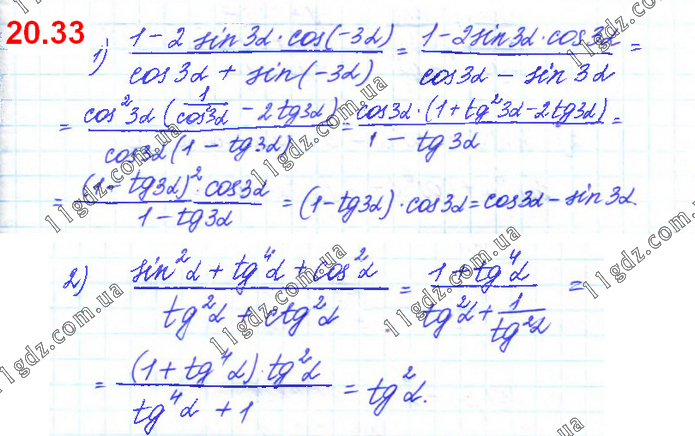 20.33
1) (1-2 sin3α·cos(-3α))/(cos3α + sin(-3α)) = (1-2sin3α·cos3α)/(cos3α - sin3α) =
= (cos²3α (1/cos²3α - 2tg3α))/(cos3α(1-tg3α)) = (cos3α·(1+tg²3α-2tg3α))/(1-tg3α) =
= ((1-tg3α)²·cos3α)/(1-tg3α) = (1-tg3α)·cos3α = cos3α - sin3α.
2) (sin²α + tg⁴α + cos²α)/(tg²α + ctg²α) = (1+tg⁴α)/(tg²α + 1/tg²α) =
= ((1+tg⁴α)·tg²α)/(tg⁴α + 1) = tg²α.
11gdz.com.ua
11gdz.com.ua
11gdz.com.ua
11gdz.com.ua
11gdz.com.ua
11gdz.com.ua